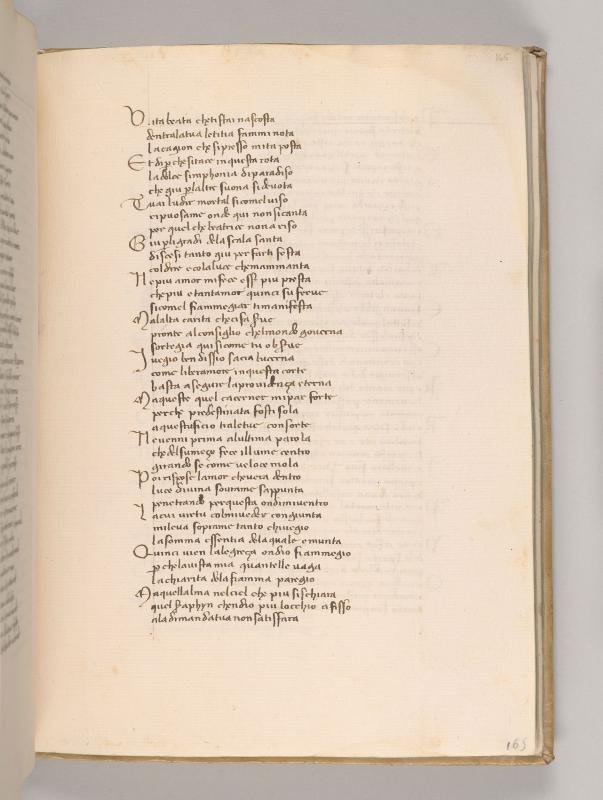 165
Vita beata che ti stai nascosta
dentralatua letitia fammi nota
la cagion che sipresso mita posta
Et di p che sitace in questa rota
la dolce simphonia di paradiso
che giu p laltre suona si devota
Tu ai ludir mortal sicomel viso
rispuosame onde qui non si canta
per quel che beatrice non a riso
Giu p li gradi dela scala santa
discesi tanto giu per farti festa
col dire e cola luce che mammanta
Ne piu amor mi fece esser piu presta
che piu e tantamor quinci su ferve
sicomel fiammegiar ti manifesta
Malalta carita checi fa serve
pronte al consiglio chelmondo governa
sortegia qui sicome tu observe
I vegio ben dissio sacra lucerna
come libero amore in questa corte
basta a seguir la providença eterna
Ma queste quel cacerner mi par forte
perche predestinata fosti sola
a questuficio tra le tue consorte
Ne venni prima alultima parola
che del su meço fece il lume centro
girando se come veloce mola
Poi rispose lamor che vera dentro
luce divina sovra me sappunta
penetrando per questa ondimiventro
La cui virtu col mi veder congiunta
mi leva sopra me tanto chi vegio
la somma essentia dela quale e munta
Quinci vien lalegreça ondio fiammegio
p che la vista mia quantelle vaga
la chiarita dela fiamma paregio
Ma quellalma nel ciel che piu si schiara
quel seraphyn chendio piu locchio a fisso
ala dimandatua non satisfara
165